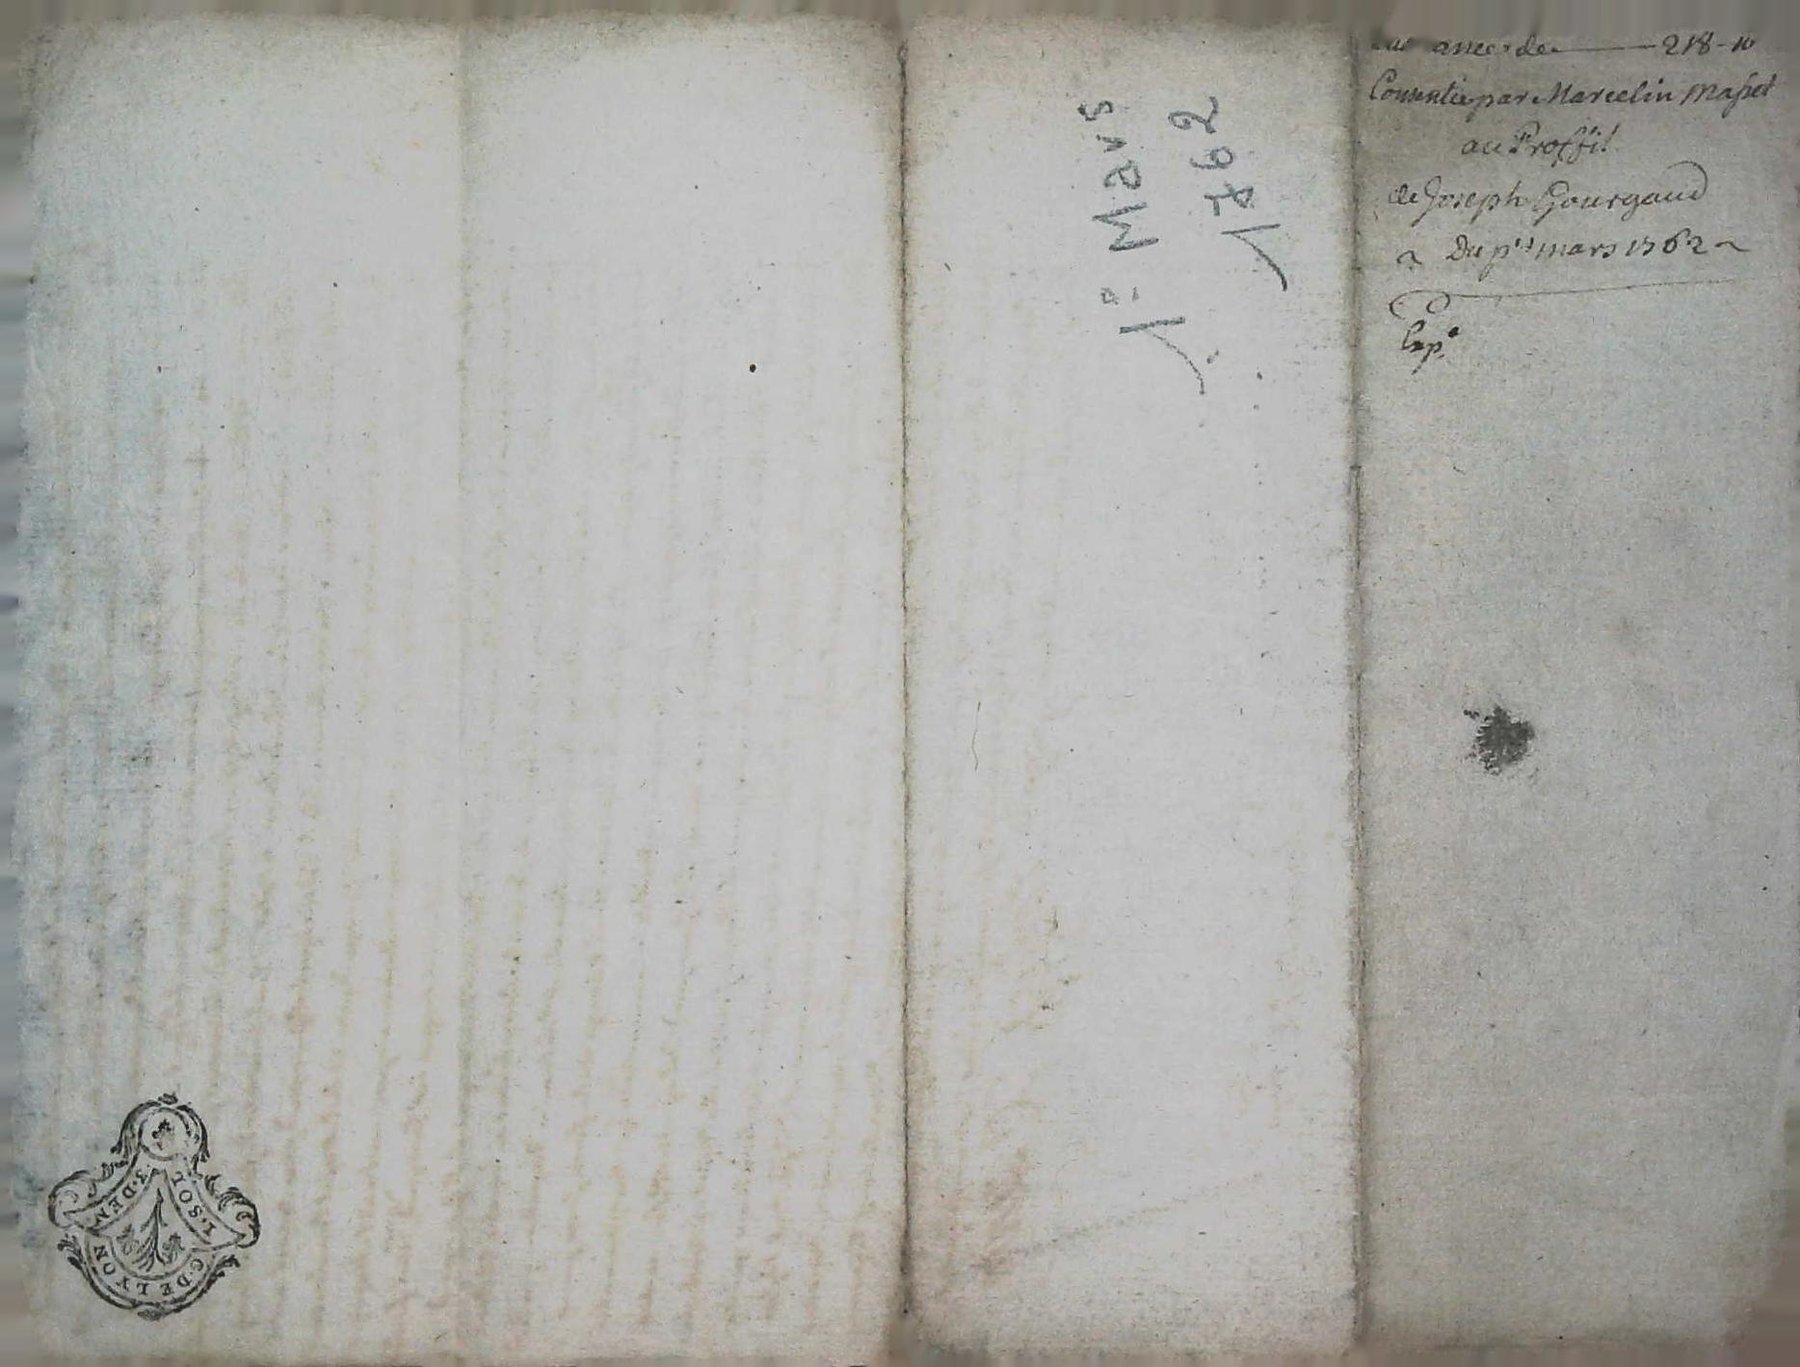 de 218-10
Consentie par Marcelin Masset
au Proffit
de Joseph Gourgaud
Du pr mars 1762
Expe
1º Mars
1762
1·SOL
3·DEN
G·DE LYON